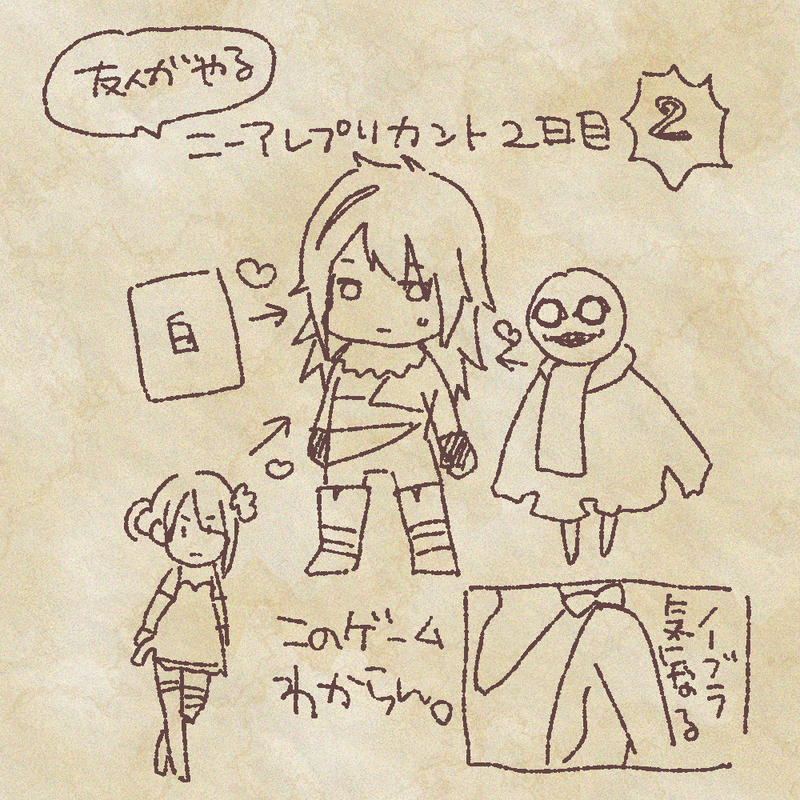 友人がやる
ニーアレプリカント2日目
2
白
このゲーム
わからん。
イーブラ
気になる